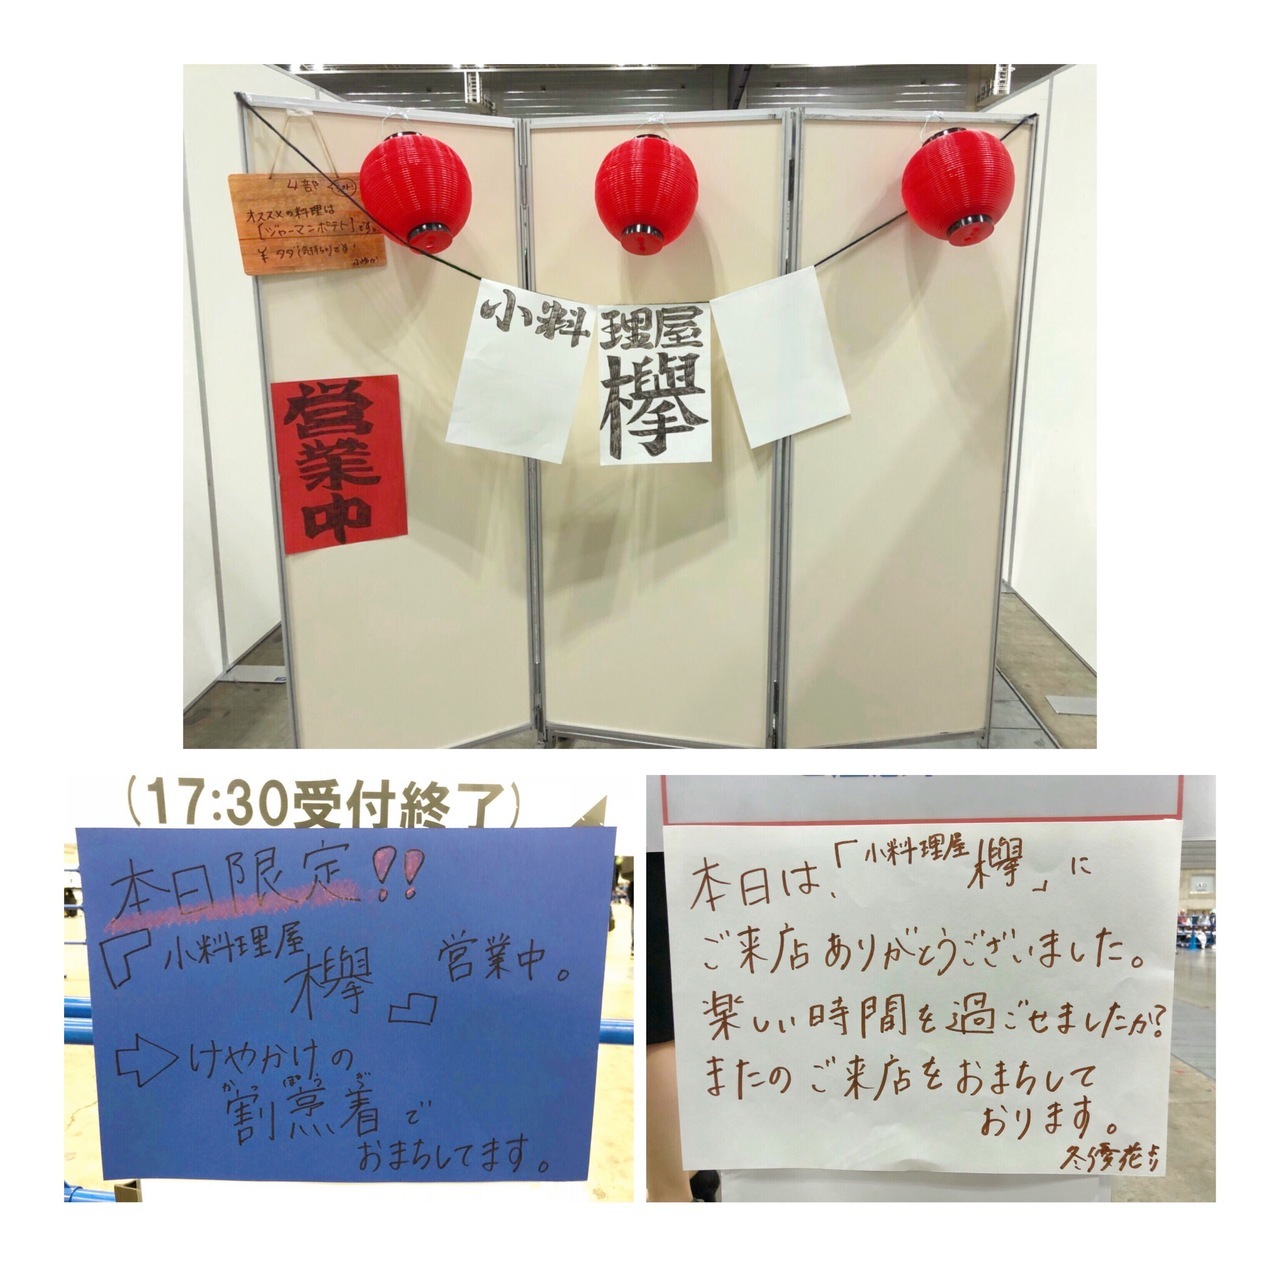 4部
オススメの料理は
【ジャーマンポテト】です。
¥ タダ(気持ち)です!
ふゆか
小料理屋
欅
営業中
(17:30受付終了)
本日限定!!
『小料理屋 欅』営業中。
⇨けやかけの
かっぽうぎ
割烹着で
おまちしてます。
本日は、「小料理屋 欅」に
ご来店ありがとうございました。
楽しい時間を過ごせましたか?
またのご来店をおまちして
おります。
冬優花より